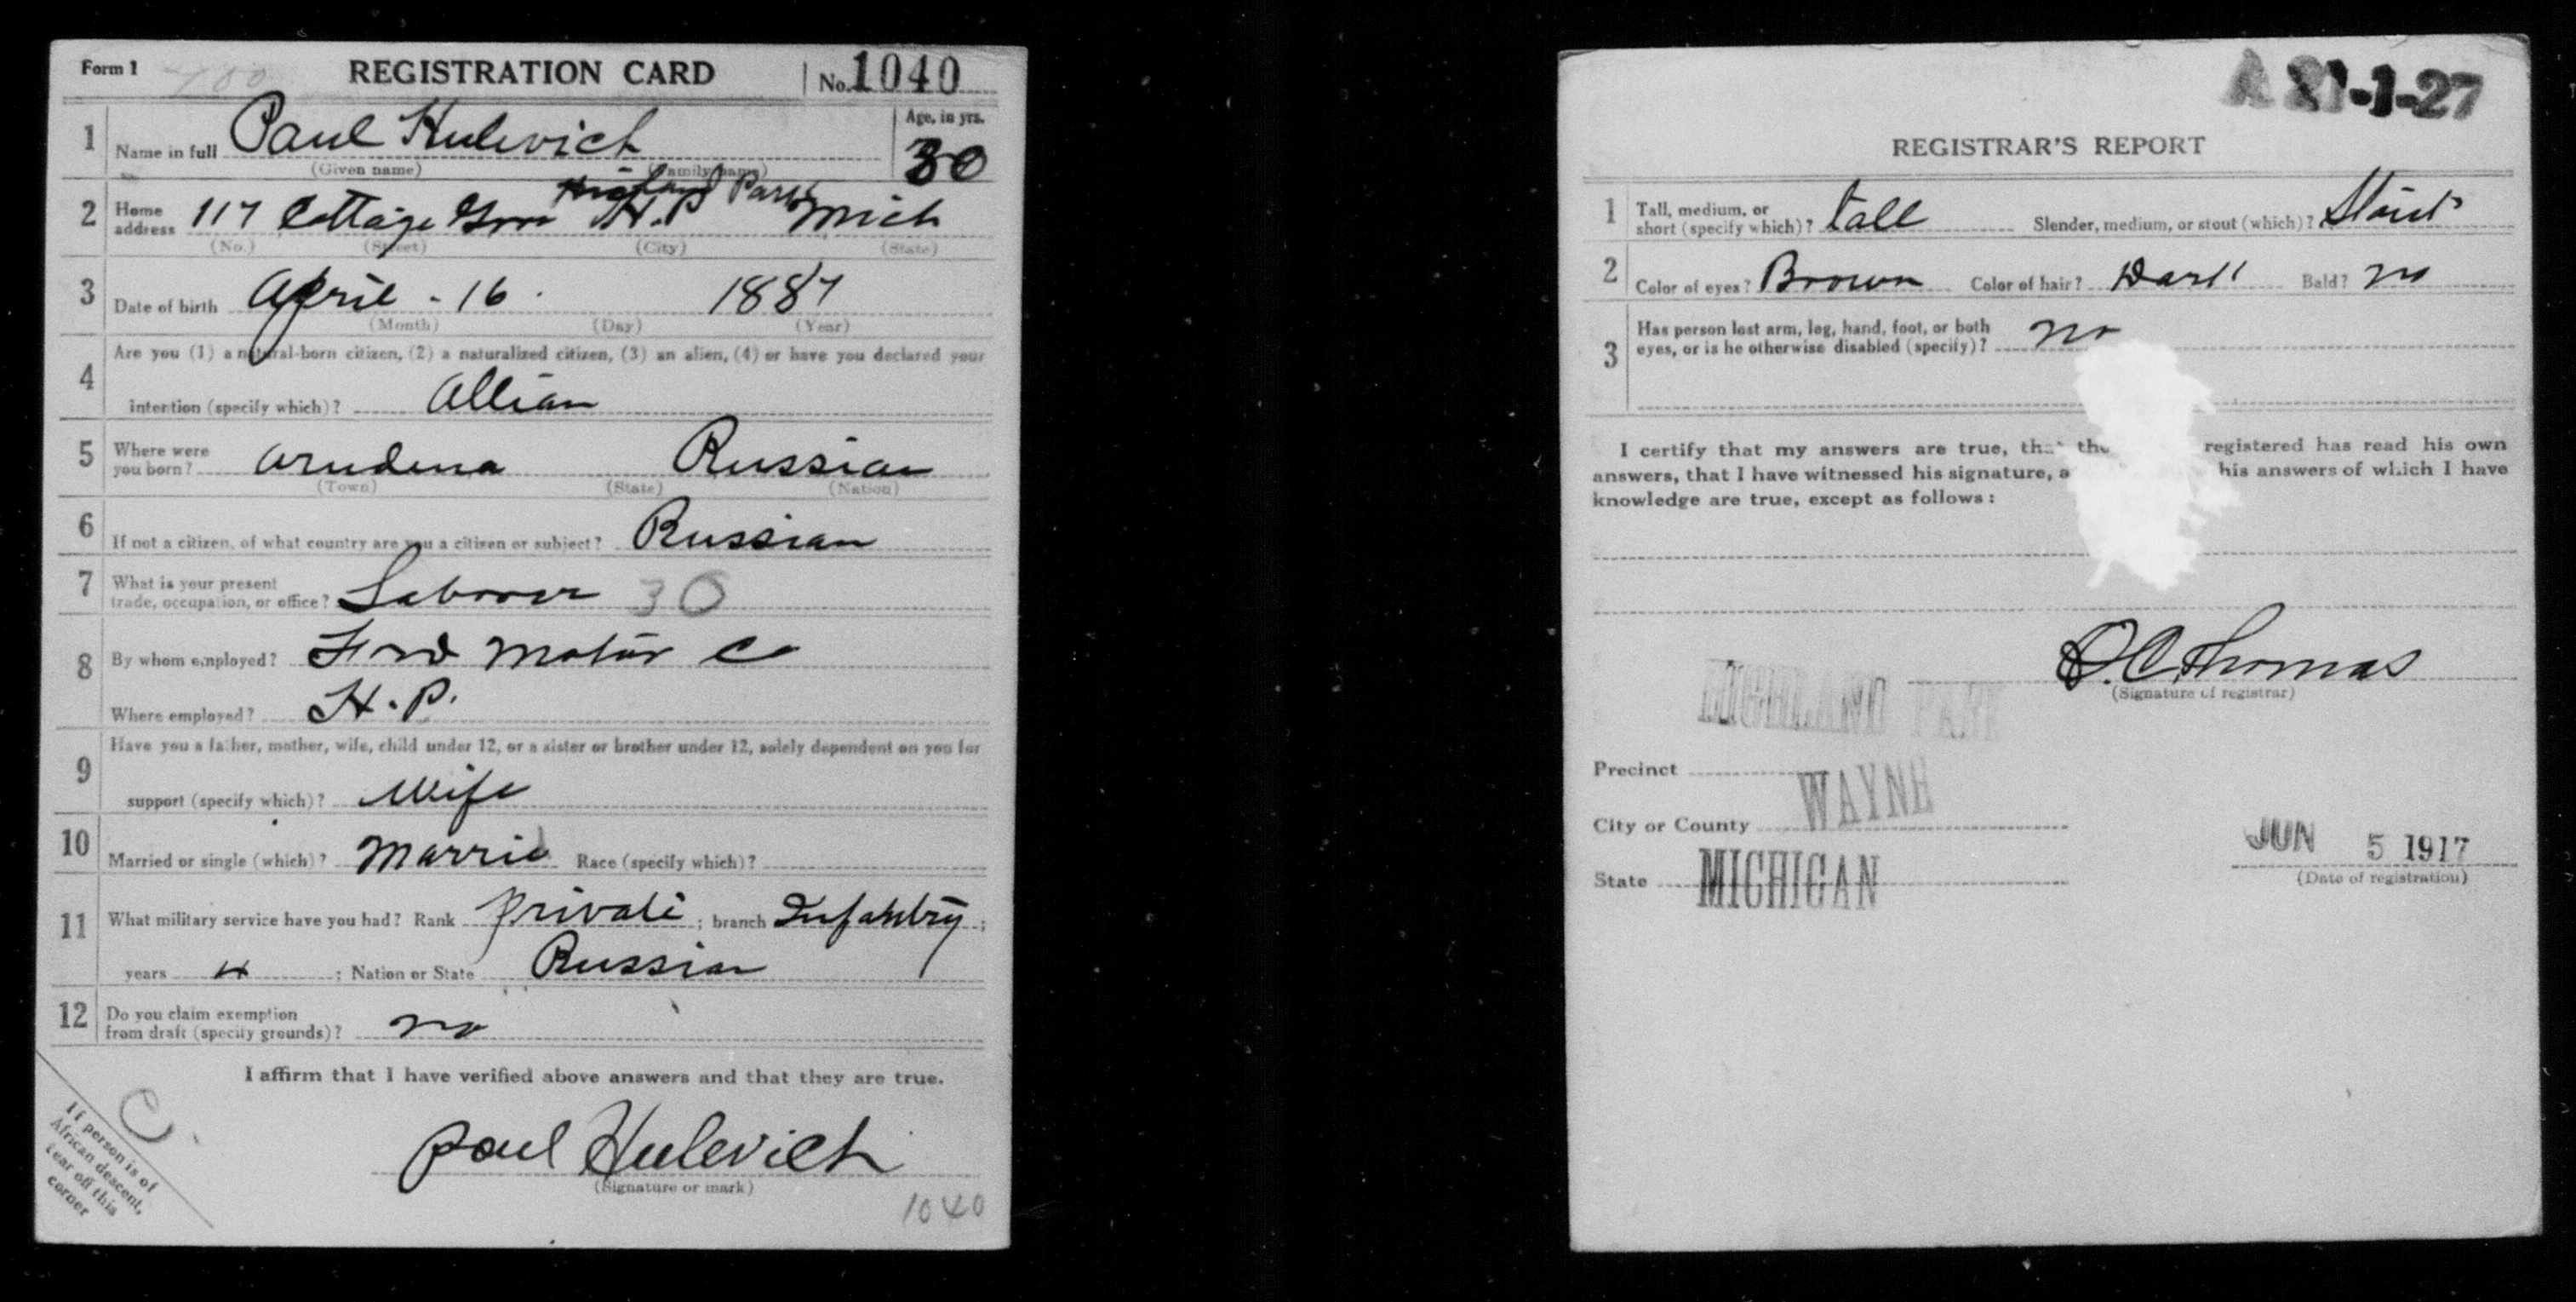 Form 1 REGISTRATION CARD No. 1040
1 Name in full Paul Hulevich Age, in yrs. 30
(Given name) (Family name)
Highland Park
2 Home address 117 Cottage Grov H.P Mich
(No.) (Street) (City) (State)
3 Date of birth April - 16 . 1887
(Month) (Day) (Year)
4 Are you (1) a natural-born citizen, (2) a naturalized citizen, (3) an alien, (4) or have you declared your
intention (specify which)? Allian
5 Where were you born? Russian
(Town) (State) (Nation)
6 If not a citizen, of what country are you a citizen or subject? Russian
7 What is your present
trade, occupation, or office? Laborer 30
8 By whom employed? Ford Motor Co
Where employed? H.P.
9 Have you a father, mother, wife, child under 12, or a sister or brother under 12, solely dependent on you for
support (specify which)? Wife
10 Married or single (which)? Married Race (specify which)?
11 What military service have you had? Rank private ; branch Infantry ;
years 4 ; Nation or State Russian
12 Do you claim exemption
from draft (specify grounds)? no
I affirm that I have verified above answers and that they are true.
Paul Hulevich
(Signature or mark)
1040
If person is of
African descent,
tear off this
corner
-1-27
REGISTRAR'S REPORT
1 Tall, medium, or
short (specify which)? Tall Slender, medium, or stout (which)? Stout
2 Color of eyes? Brown Color of hair? Dark Bald? no
3 Has person lost arm, leg, hand, foot, or both
eyes, or is he otherwise disabled (specify)? no
I certify that my answers are true, that the registered has read his own
answers, that I have witnessed his signature, a his answers of which I have
knowledge are true, except as follows:
D.C. Thomas
(Signature of registrar)
HIGHLAND PARK
Precinct
City or County WAYNE
State MICHIGAN
JUN 5 1917
(Date of registration)